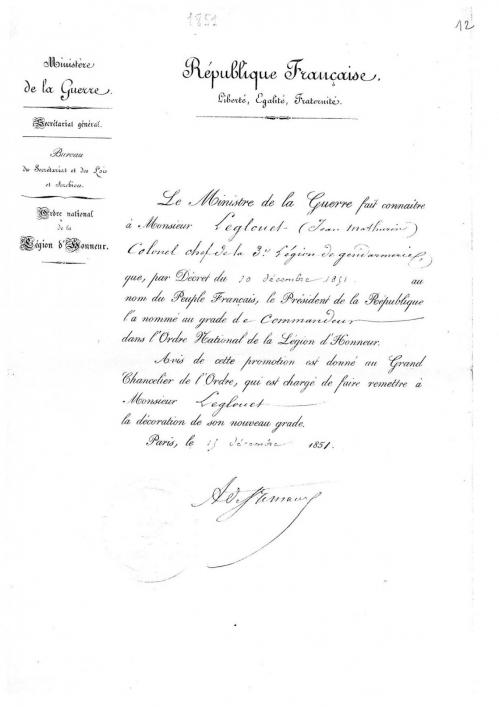 1851
12
Ministère
de la Guerre.
Secrétariat général.
Bureau
du Secrétariat et des Lois
et Archives.
Ordre national
de la
Légion d'Honneur.
République Française.
Liberté, Egalité, Fraternité.
Le Ministre de la Guerre fait connaître
à Monsieur Leglouet (Jean Mathurin)
Colonel chef de la 3e Légion de gendarmerie,
que, par Décret du 10 décembre 1851 au
nom du Peuple Français, le Président de la République
l'a nommé au grade de Commandeur
dans l'Ordre National de la Légion d'Honneur.
Avis de cette promotion est donné au Grand
Chancelier de l'Ordre, qui est chargé de faire remettre à
Monsieur Leglouet
la décoration de son nouveau grade.
Paris, le 15 décembre 1851.
A de St Arnaud